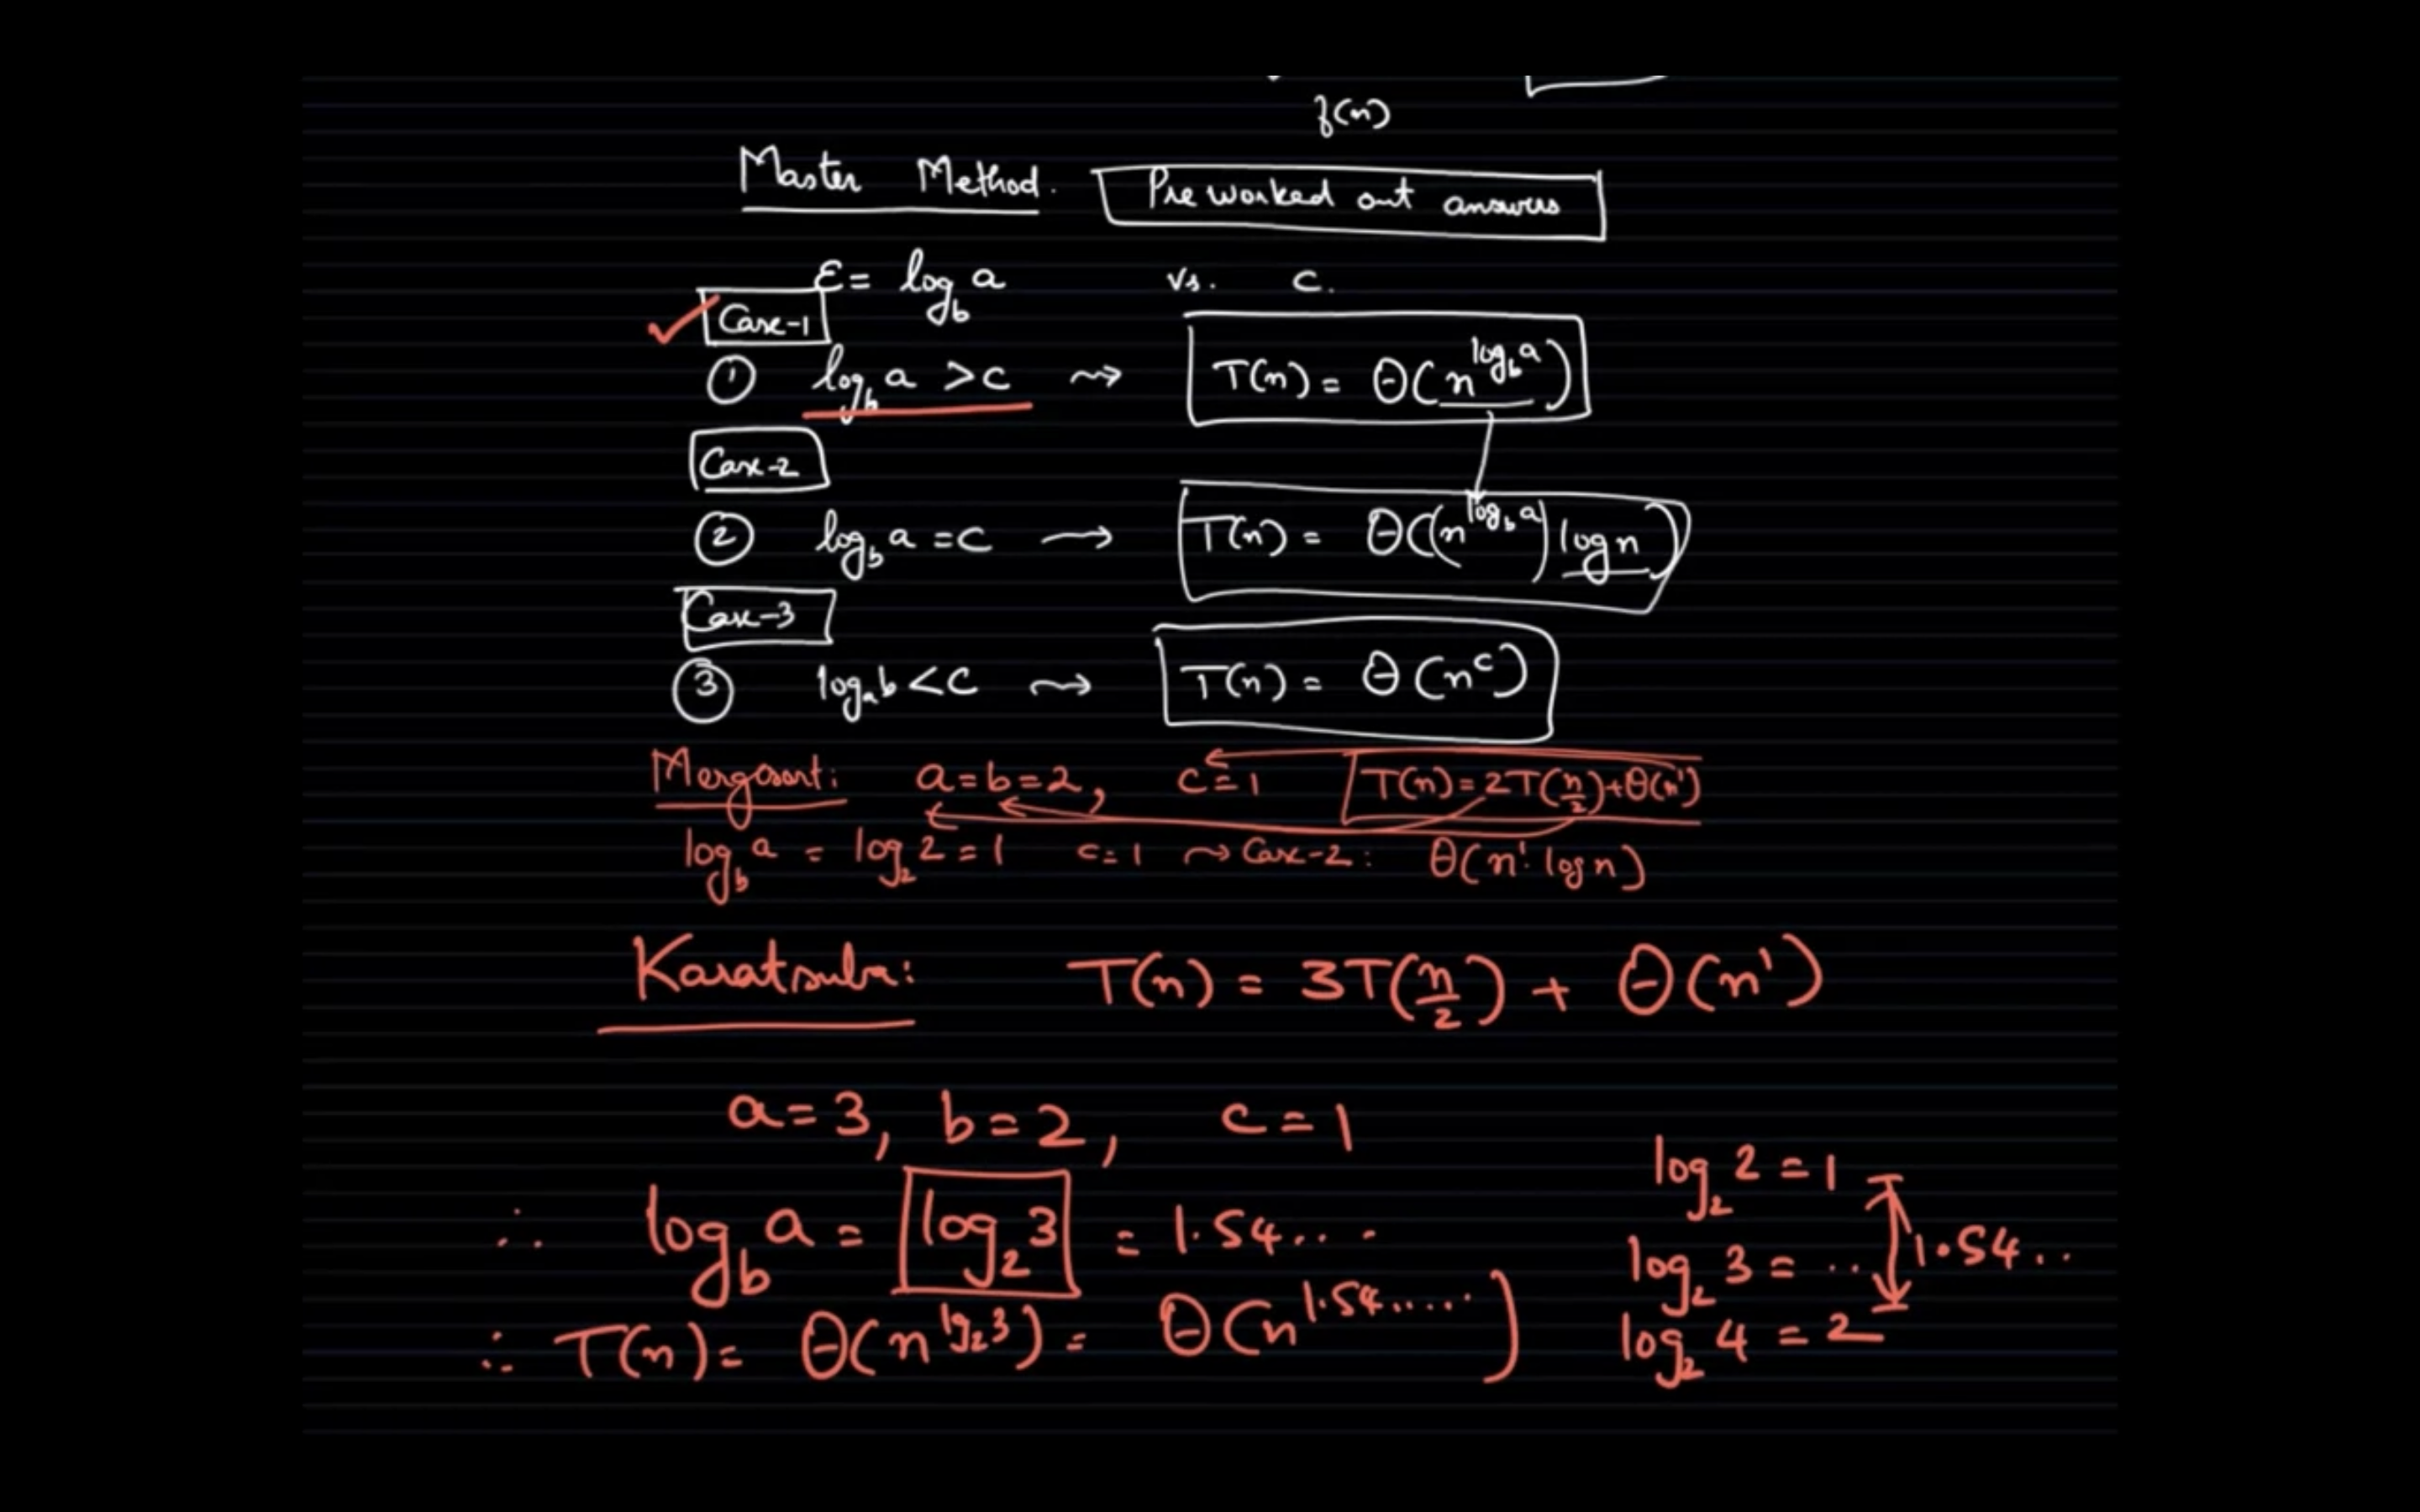 f(n)
Master Method. Pre worked out answers
ε = log_b a vs. c.
Case-1
① log_b a > c ⇝ T(n) = Θ(n^{log_b a})
Case-2
② log_b a = c ⟶ T(n) = Θ((n^{log_b a}) log n)
Case-3
③ log_a b < c ⇝ T(n) = Θ(n^c)
Mergesort: a = b = 2, c = 1 T(n) = 2T(n/2) + Θ(n^1)
log_b a = log_2 2 = 1 c = 1 ⇝ Case-2: Θ(n^1. log n)
Karatsuba: T(n) = 3T(n/2) + Θ(n^1)
a = 3, b = 2, c = 1
∴ log_b a = log_2 3 = 1.54...
∴ T(n) = Θ(n^{lg_2 3}) = Θ(n^{1.54.....})
log_2 2 = 1
log_2 3 = .. 1.54..
log_2 4 = 2